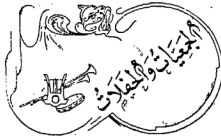 الجمعيّات والحفلات